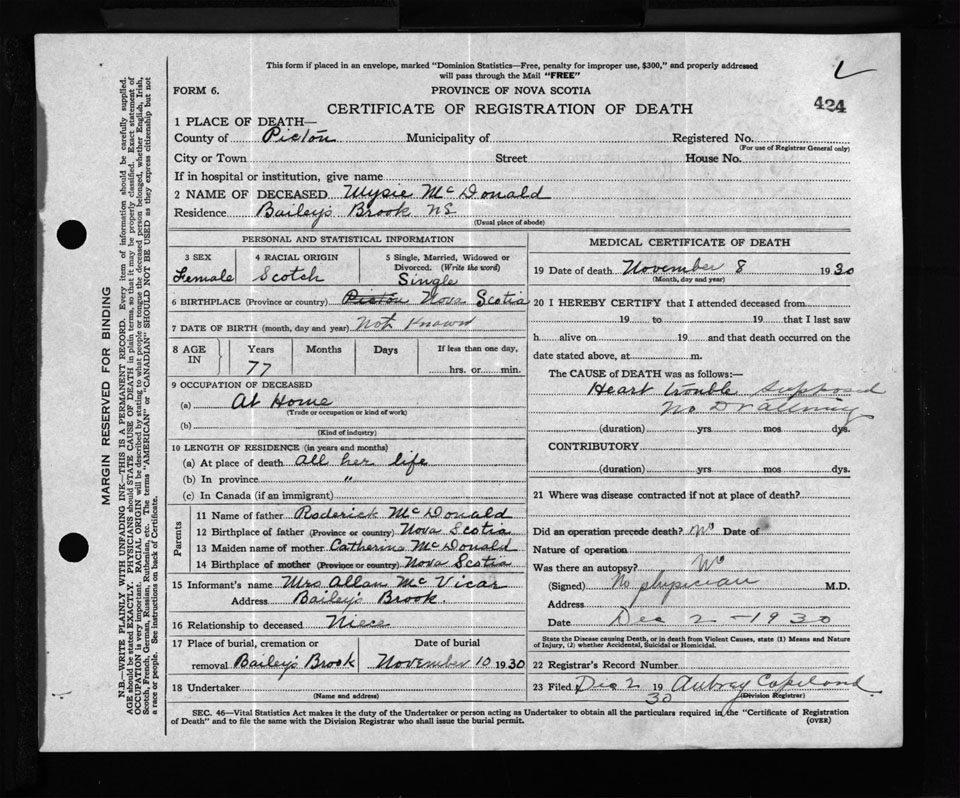 This form if placed in an envelope, marked "Dominion Statistics—Free, penalty for improper use, $300," and properly addressed
will pass through the Mail "FREE"
FORM 6.
PROVINCE OF NOVA SCOTIA
424
CERTIFICATE OF REGISTRATION OF DEATH
1 PLACE OF DEATH—
County of Pictou Municipality of Registered No.
(For use of Registrar General only)
City or Town Street House No.
If in hospital or institution, give name
2 NAME OF DECEASED McDonald
Residence Bailey's Brook NS
(Usual place of abode)
PERSONAL AND STATISTICAL INFORMATION
3 SEX 4 RACIAL ORIGIN 5 Single, Married, Widowed or
Divorced. (Write the word)
Female Scotch Single
6 BIRTHPLACE (Province or country) Pictou Nova Scotia
7 DATE OF BIRTH (month, day and year) Not Known
8 AGE IN Years Months Days If less than one day,
77 hrs. or min.
9 OCCUPATION OF DECEASED
(a) At Home
(Trade or occupation or kind of work)
(b)
(Kind of industry)
10 LENGTH OF RESIDENCE (in years and months)
(a) At place of death all her life
(b) In province "
(c) In Canada (if an immigrant)
Parents
11 Name of father Roderick McDonald
12 Birthplace of father (Province or country) Nova Scotia
13 Maiden name of mother Catherine McDonald
14 Birthplace of mother (Province or country) Nova Scotia
15 Informant's name Mrs Allan McVicar
Address Bailey's Brook.
16 Relationship to deceased Niece
17 Place of burial, cremation or Date of burial
removal Bailey's Brook November 10 1930
18 Undertaker
(Name and address)
MEDICAL CERTIFICATE OF DEATH
19 Date of death November 8 1930
(Month, day and year)
20 I HEREBY CERTIFY that I attended deceased from
19 to 19 that I last saw
h alive on 19 and that death occurred on the
date stated above, at m.
The CAUSE of DEATH was as follows:—
Heart trouble supposed
No Dr attending
(duration) yrs. mos. dys.
CONTRIBUTORY
(duration) yrs. mos. dys.
21 Where was disease contracted if not at place of death?
Did an operation precede death? No Date of
Nature of operation
Was there an autopsy? No
(Signed) No physician M.D.
Address
Date Dec 2 - 1930
State the Disease causing Death, or in death from Violent Causes, state (1) Means and Nature
of Injury, (2) whether Accidental, Suicidal or Homicidal.
22 Registrar's Record Number
23 Filed Dec 2 19 30 Aubrey Copeland
(Division Registrar)
SEC. 46—Vital Statistics Act makes it the duty of the Undertaker or person acting as Undertaker to obtain all the particulars required in the "Certificate of Registration
of Death" and to file the same with the Division Registrar who shall issue the burial permit.
(OVER)
MARGIN RESERVED FOR BINDING
N.B.—WRITE PLAINLY WITH UNFADING INK—THIS IS A PERMANENT RECORD. Every item of information should be carefully supplied.
AGE should be stated EXACTLY. PHYSICIANS should STATE CAUSE OF DEATH in plain terms, so that it may be properly classified. Exact statement of
OCCUPATION is very important. RACIAL ORIGIN will be described by stating to what people or tongue the deceased person belonged, whether English, Irish,
Scotch, French, German, Russian, Ruthenian, etc. The terms "AMERICAN" or "CANADIAN" SHOULD NOT BE USED as they express citizenship but not
a race or people. See instructions on back of Certificate.